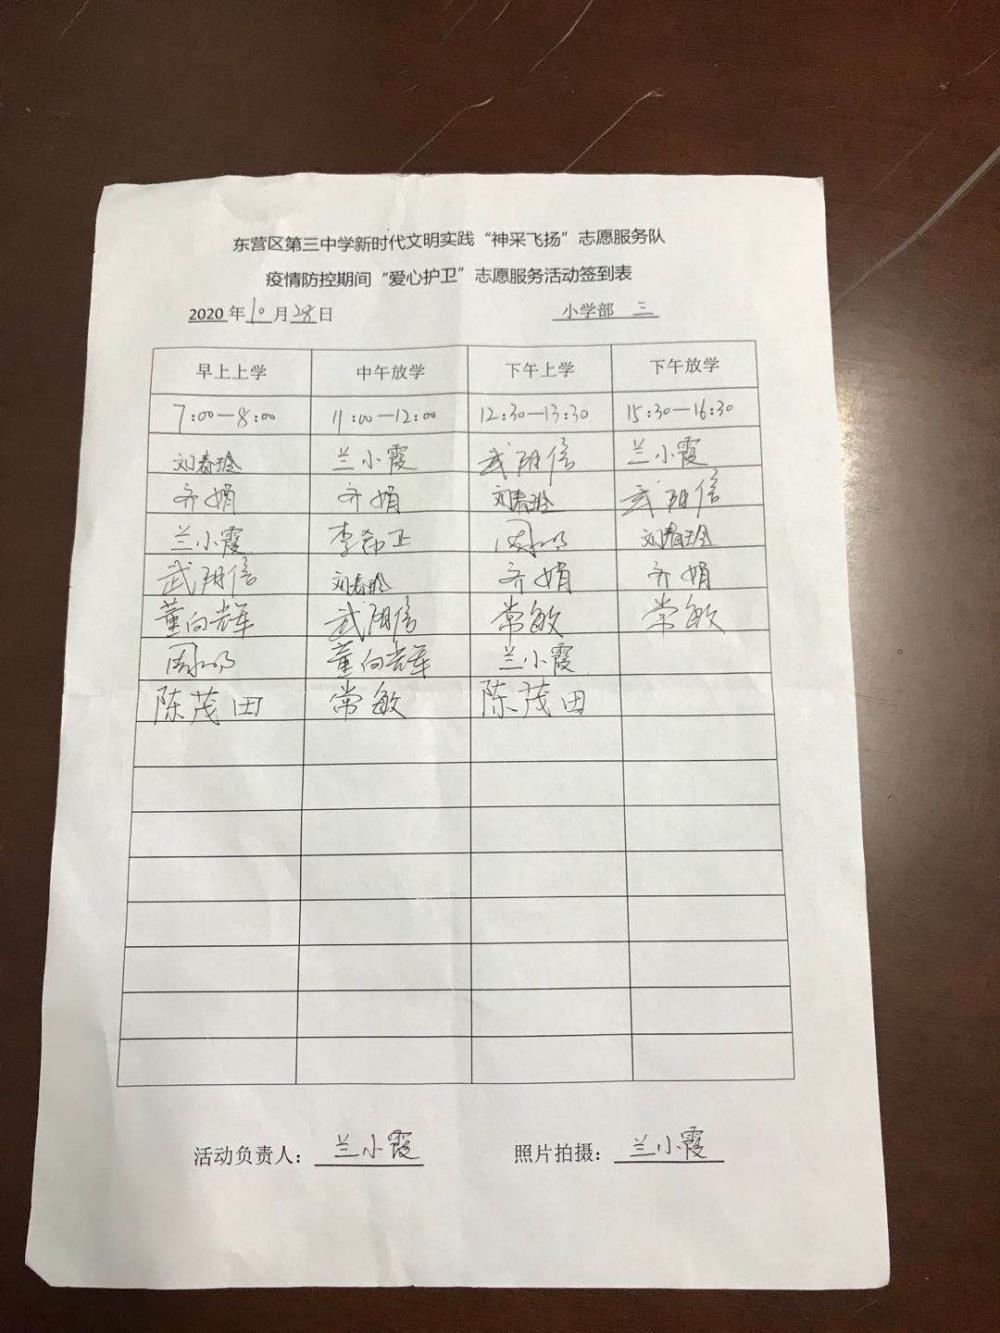 东营区第三中学新时代文明实践“神采飞扬”志愿服务队
疫情防控期间“爱心护卫”志愿服务活动签到表
2020 年 10 月 28 日 小学部 三
早上上学 中午放学 下午上学 下午放学
7:00—8:00 11:00—12:00 12:30—13:30 15:30—16:30
刘春玲 兰小霞 武翔信 兰小霞
齐娟 齐娟 刘春玲 武翔信
兰小霞 李希正 刘春玲
武翔信 刘春玲 齐娟 齐娟
董向辉 武翔信 常敏 常敏
董向辉 兰小霞
陈茂田 常敏 陈茂田
活动负责人：兰小霞 照片拍摄：兰小霞